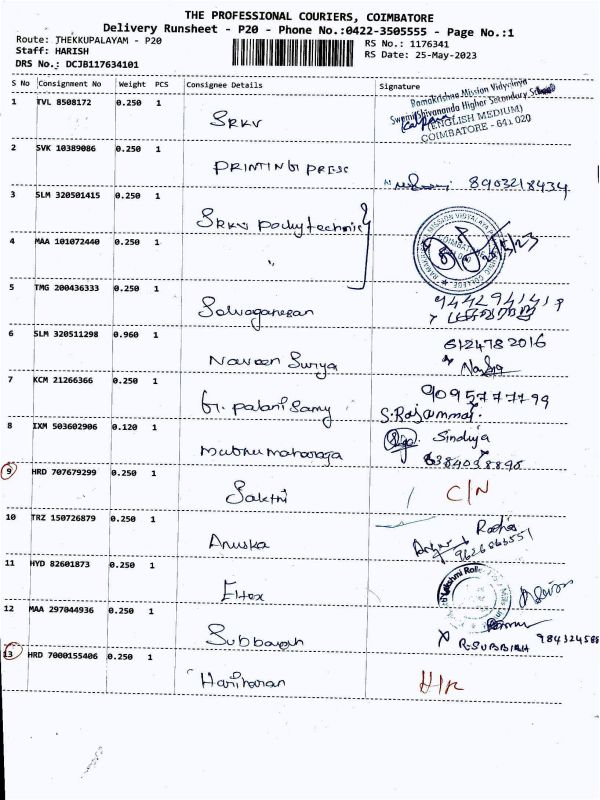 THE PROFESSIONAL COURIERS, COIMBATORE
Delivery Runsheet - P20 - Phone No.:0422-3505555 - Page No.:1
Route: THEKKUPALAYAM - P20
RS No.: 1176341
Staff: HARISH
RS Date: 25-May-2023
DRS No.: DCJB117634101
S No Consignment No Weight PCS Consignee Details Signature
1 TVL 8508172 0.250 1 SRKV
Ramakrishna Mission Vidyalaya
Swami Shivananda Higher Secondary School
(ENGLISH MEDIUM)
COIMBATORE - 641 020
2 SVK 10389086 0.250 1 PRINTING PRESS
8903218434
3 SLM 320501415 0.250 1 SRKV Polytechnic
4 MAA 101072440 0.250 1 "
5 TMG 200436333 0.250 1 Selvaganesan
6 SLM 320511298 0.960 1 Naveen Surya
6124782016
7 KCM 21266366 0.250 1 G. Palanisamy
9095777799
S. Rajammal.
8 IXM 503602906 0.120 1
Sindhya
9 HRD 707679299 0.250 1 Sakthi C/N
10 TRZ 150726879 0.250 1 Anuska
Radha
11 HYD 82601873 0.250 1 Eltex
12 MAA 297044936 0.250 1 Subbaiah
R. SUBBIAH
13 HRD 7000155406 0.250 1 Hariharan